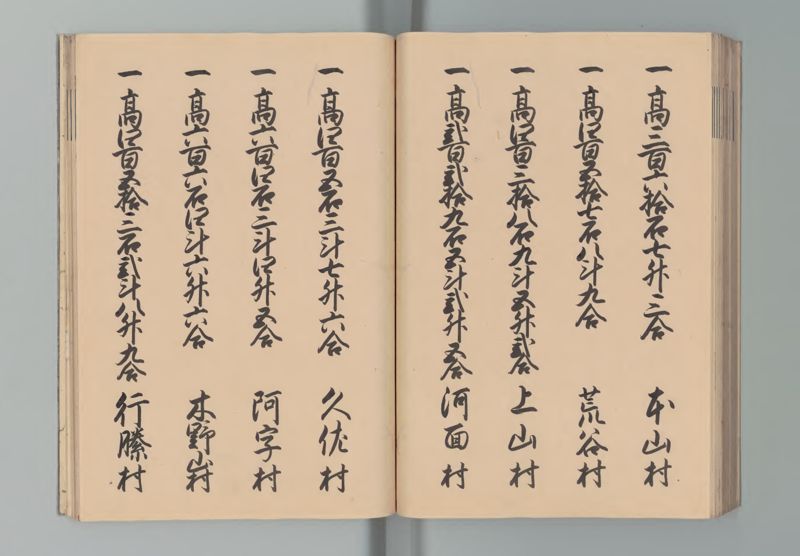 一高三百六拾石七升三合 本山村
一高四百五拾七石八斗九合 荒谷村
一高四百三拾八石九斗五升弐合 上山村
一高弐百弐拾九石五斗弐升五合 河面村
一高四百五石三斗七升六合 久佐村
一高六百四石三斗四升五合 阿字村
一高六百六石四斗六升六合 木野山村
一高四百五拾三石弐斗八升九合 行縢村